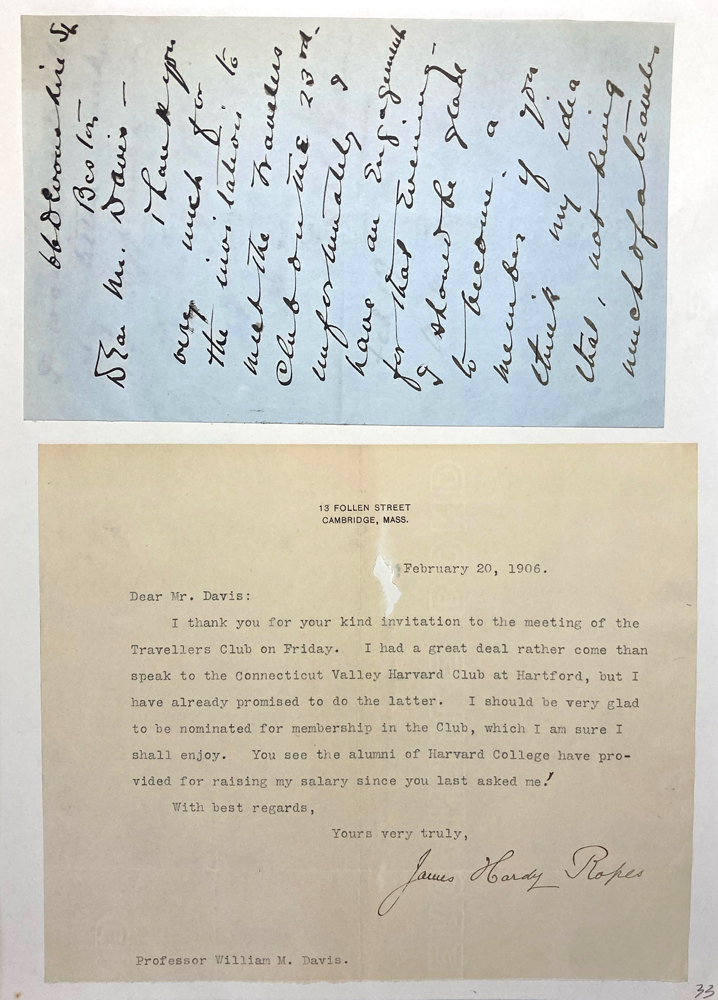 66 Devonshire St
Boston
Dear Mr. Davis —
Thank you
very much for
the invitation to
meet the Travellers
Club on the 23rd.
unfortunately I
have an engagement
for that evening —
I should be glad
to become a
member if you
think my idea
that, not being
much of a traveller
13 FOLLEN STREET
CAMBRIDGE, MASS.
February 20, 1906.
Dear Mr. Davis:
I thank you for your kind invitation to the meeting of the
Travellers Club on Friday. I had a great deal rather come than
speak to the Connecticut Valley Harvard Club at Hartford, but I
have already promised to do the latter. I should be very glad
to be nominated for membership in the Club, which I am sure I
shall enjoy. You see the alumni of Harvard College have pro-
vided for raising my salary since you last asked me!
With best regards,
Yours very truly,
James Hardy Ropes
Professor William M. Davis.
33